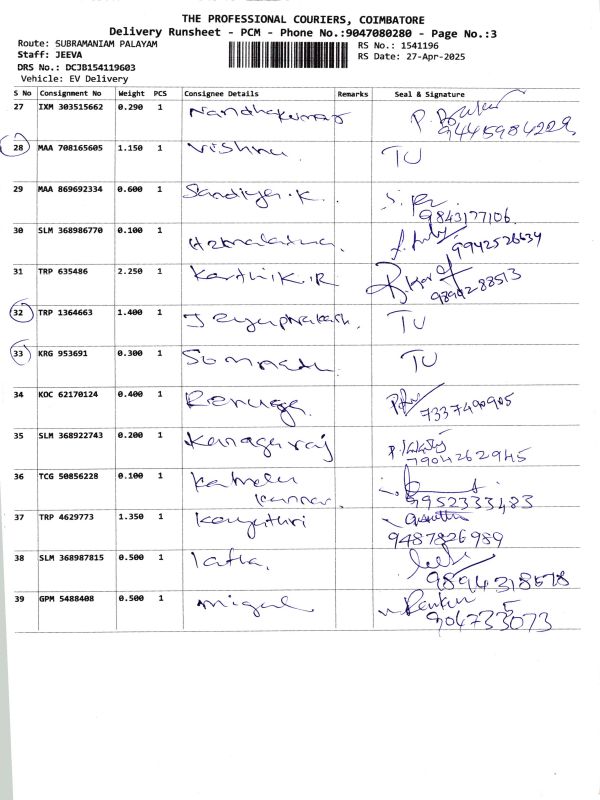 THE PROFESSIONAL COURIERS, COIMBATORE
Delivery Runsheet - PCM - Phone No.:9047080280 - Page No.:3
Route: SUBRAMANIAM PALAYAM
RS No.: 1541196
Staff: JEEVA
RS Date: 27-Apr-2025
DRS No.: DCJB154119603
Vehicle: EV Delivery
S No Consignment No Weight PCS Consignee Details Remarks Seal & Signature
27 IXM 303515662 0.290 1 Nandhakumar
28 MAA 708165605 1.150 1 Vishnu TU
29 MAA 869692334 0.600 1 Sandiya.K.
9843177106.
30 SLM 368986770 0.100 1 9942526634
31 TRP 635486 2.250 1 Karthik.R
9894288513
32 TRP 1364663 1.400 1 Jeyaprakash. TU
33 KRG 953691 0.300 1 TU
34 KOC 62170124 0.400 1 Renuga. 7337490905
35 SLM 368922743 0.200 1 Kanagaraj
7904262945
36 TCG 50856228 0.100 1
Kannan. 9952333483
37 TRP 4629773 1.350 1 Kayathri
9487826989
38 SLM 368987815 0.500 1 latha.
9894318578
39 GPM 5488408 0.500 1